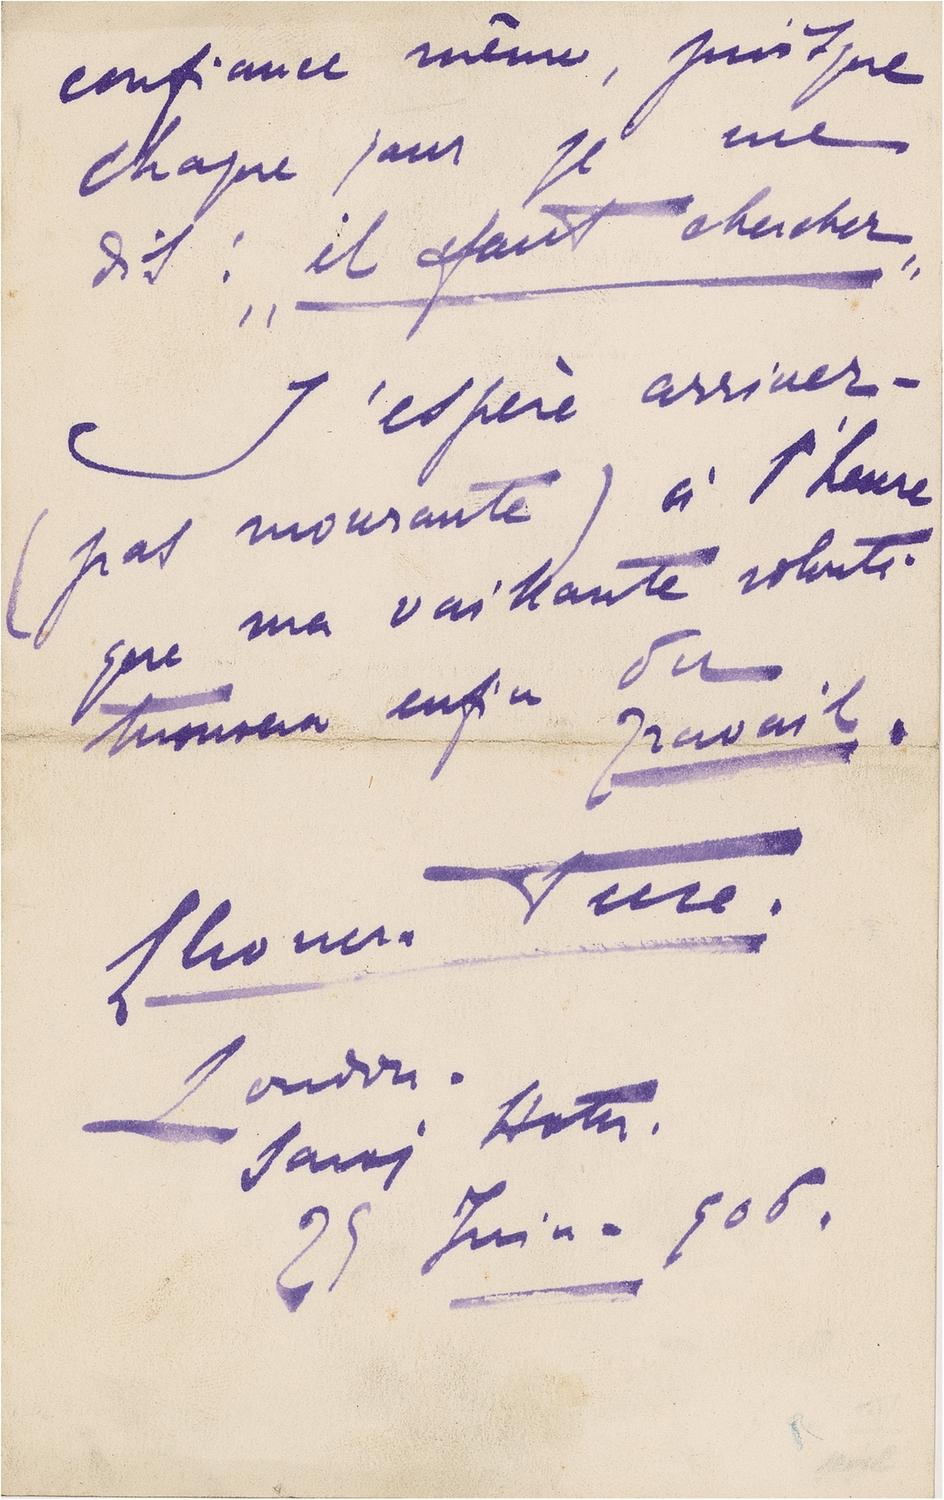 confiance même, puisque
chaque jour je me
dis : „il faut chercher„
J'espère arriver-
(pas mourante) à l'heure
que ma vaillante volonté
trouvera enfin du
travail.
Eleonora Duse.
London.
Savoy Hotel.
29 Juin - 906.